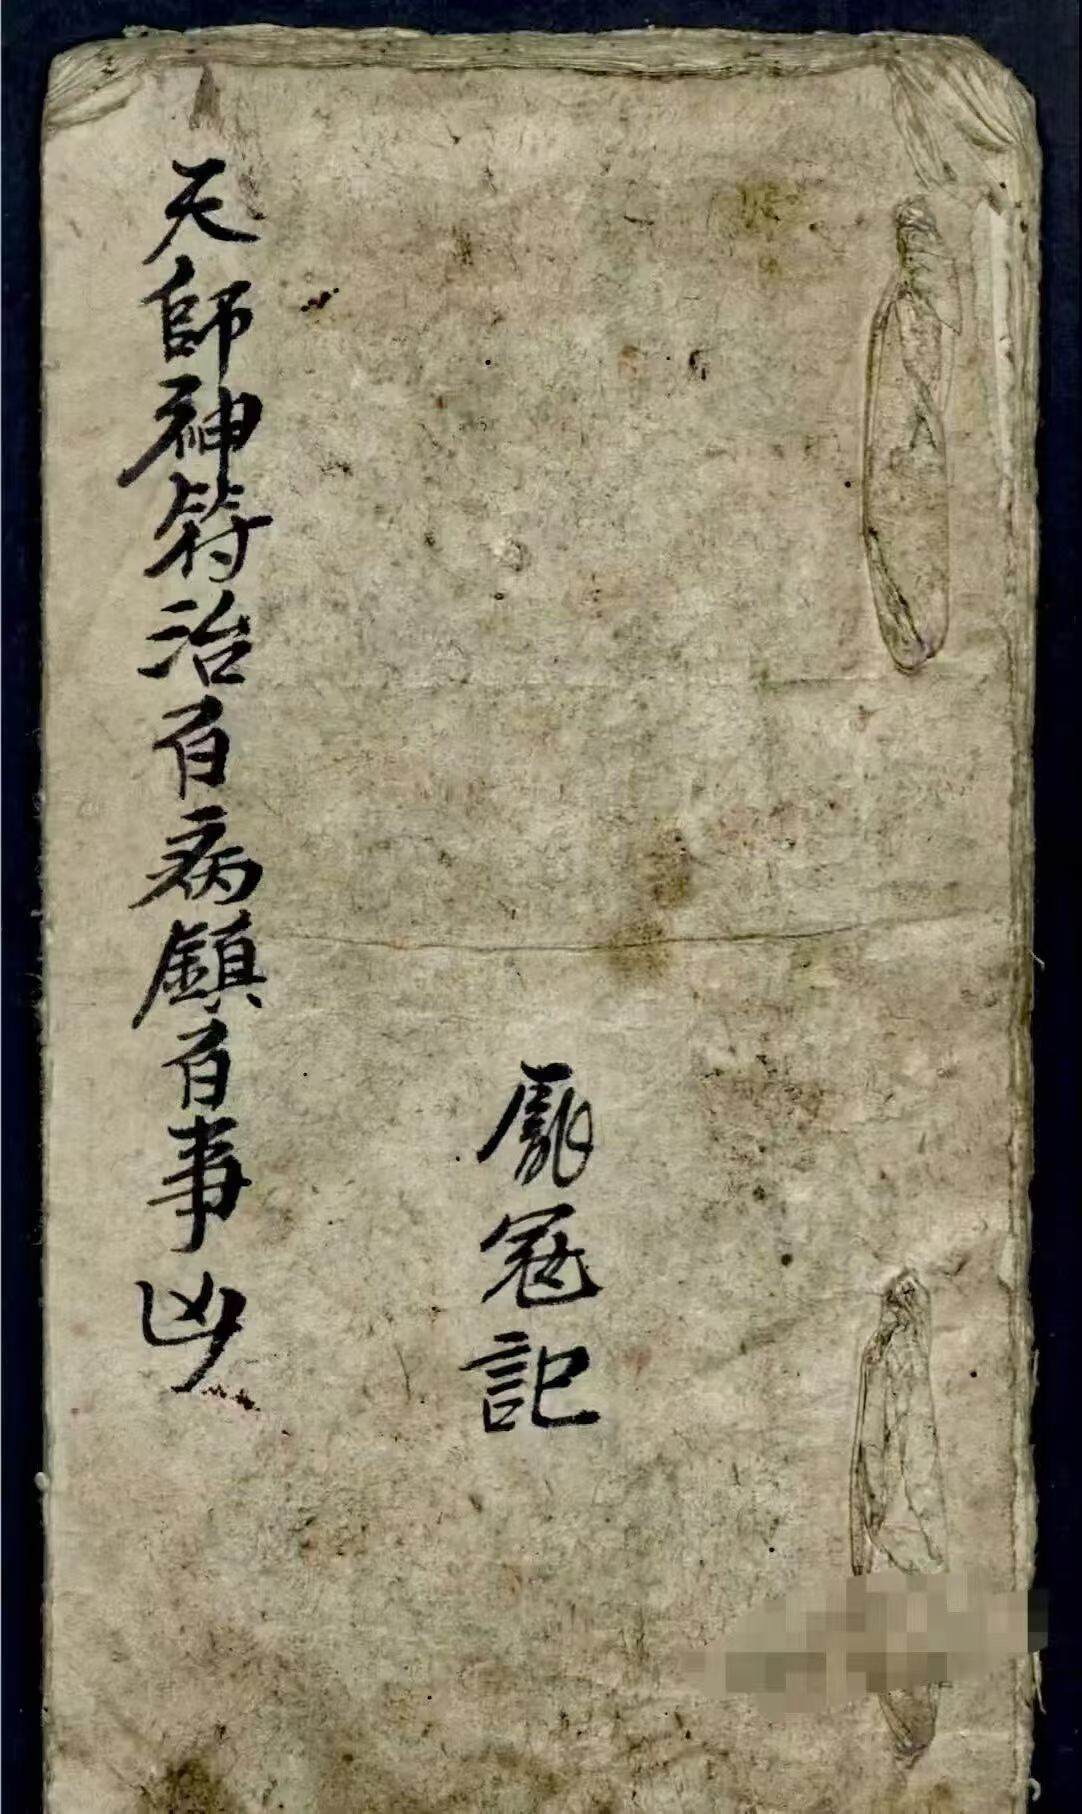 天師神符治百病鎮百事凶
龐冠記